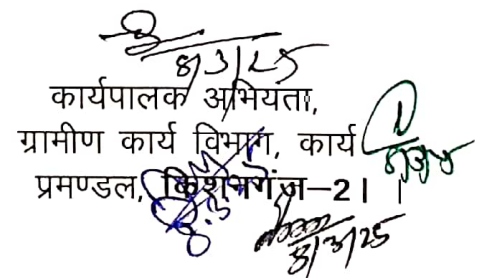 8/3/25
कार्यपालक अभियता,
ग्रामीण कार्य विभाग, कार्य
8/3/25
प्रमण्डल, किशनगंज–2। ।
8/3/25